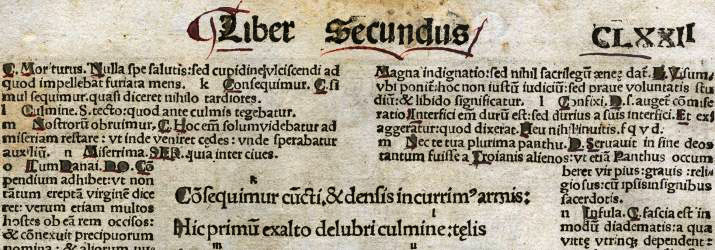 Liber Secundus
CLXXII
C. Moriturus. Nulla spe salutis: sed cupidine vlciscendi ad
quod impellebat furiata mens. k Consequimur. C. si
mul sequimur. quasi diceret nihilo tardiores.
l Culmine. S. tecto: quod ante culmis tegebatur.
m Nostrorũ obruimur. C. Hoc em̃ solum videbatur ad
miseriam restare: vt inde veniret cędes: vnde sperabatur
auxiliũ. n Miserrima. SER. quia inter ciues.
o Tum Danai. DO. Cõ
pendium adhibet: vt non
tãtum ereptã virginẽ dice
ret: verum etiam multos
hostes ob eã rem occisos:
& conexuit precipuorum
nomina: & aliorum
Magna indignatio: sed nihil sacrilegũ æneę dat. D. Visum,
vbi ponit: hoc non iustũ iudiciũ: sed praue voluntatis stu
diũ: & libido significatur. l Confixi. D. f. auget cõmise
ratio Interfici em̃ durũ est: sed durius a suis interfici. Et ex
aggeratur: quod dixerat. Heu nihil inuitis. f q v d.
m Nec te tua plurima panthu. D. Seruauit in fine deos
tantum fuisse a Troianis alienos: vt etiã Panthus occum
beret vir pius: grauis: reli
giosus: cũ ipsis in signibus
sacerdotis.
n Infula. C. fascia est in
modũ diadematis: a qua
vittę vtrinq; dependent:
k
Cõsequimur cũcti, & densis incurrim᷒ armis:
l
Hic primũ ex alto delubri culmine: tęlis
m